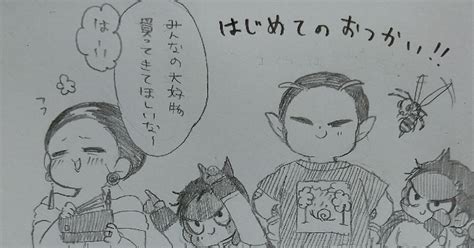 はじめてのおつかい!!
みんなの大好物
買ってきてほしいな〜
はーい